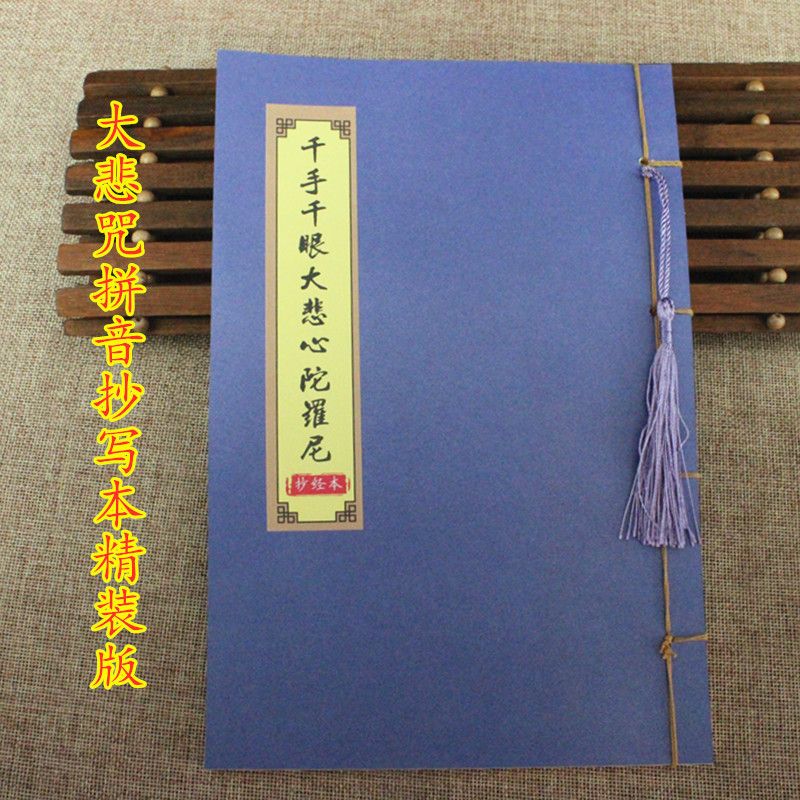 大悲咒拼音抄写本精装版
千手千眼大悲心陀羅尼
抄经本